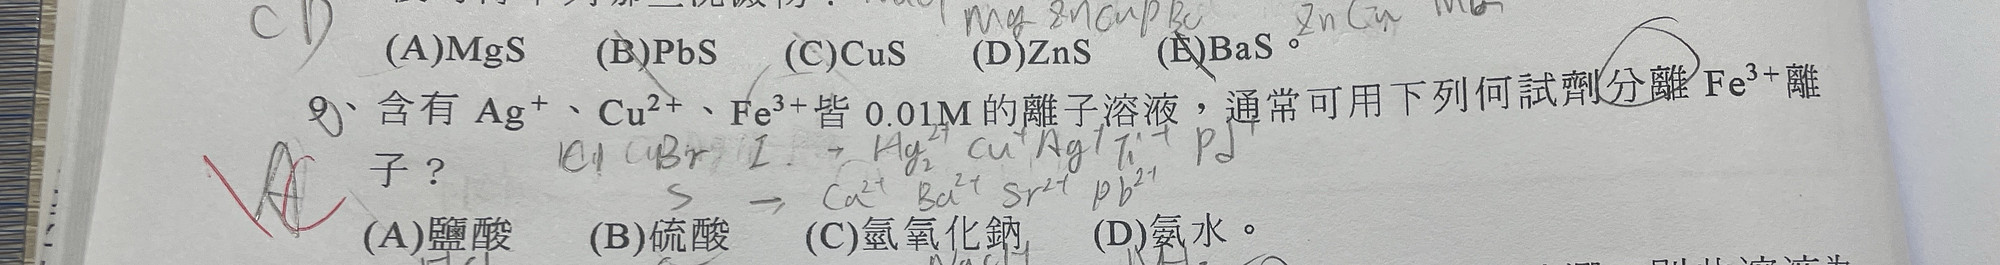 CD
Mg Zn Cu Pb Ba Zn Cu
(A)MgS (B)PbS (C)CuS (D)ZnS (E)BaS。
9、含有 Ag⁺、Cu²⁺、Fe³⁺皆 0.01M 的離子溶液，通常可用下列何試劑分離 Fe³⁺離
Cl Br I → Hg₂²⁺ Cu⁺ Ag⁺ Ti⁺ Pd⁺
子？
S → Ca²⁺ Ba²⁺ Sr²⁺ Pb²⁺
(A)鹽酸 (B)硫酸 (C)氫氧化鈉 (D)氨水。